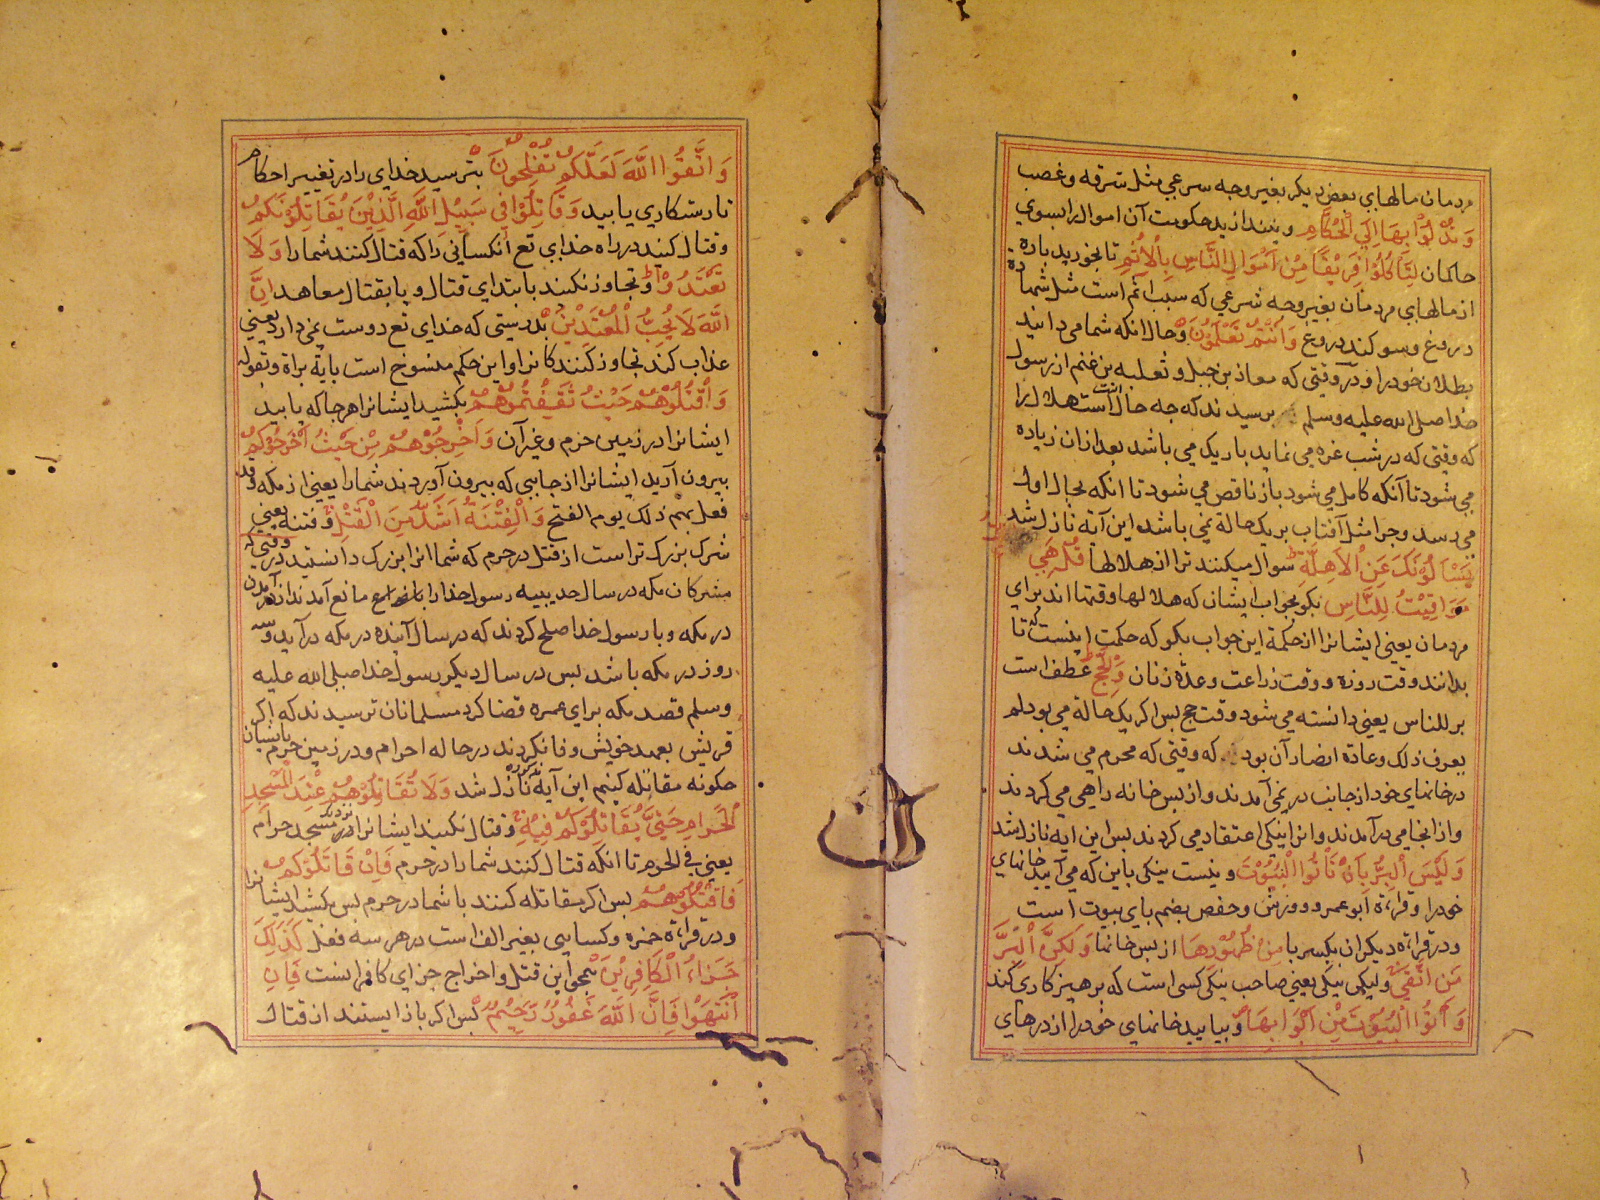 مردمان مالهای بعض دیکر بغیر وجه شرعی مثل سرقه وغصب
وَتُدْلُوْا بِهَا اِلَی الْحُکَّامِ ونیندازید حکومت آن اموال را بسوی
حاکمان لِتَأْکُلُوْا فَرِیْقًا مِنْ اَمْوَالِ النَّاسِ بِالْاِثْمِ تا بخورید پاره
از مالهای مردمان بغیر وجه شرعی که سبب اثم است مثل شهادة
دروغ وسوکند دروغ وَاَنْتُمْ تَعْلَمُوْنَ وحال انکه شما می دانید
بطلان خود را و در وقتی که معاذ بن جبل و ثعلبه بن غنم از رسول
خدا صلی الله علیه وسلم پرسیدند که چه حال است هلال را
که وقتی که در شب غره می نماید باریک می باشد بعد ازان زیاده
می شود تا آنکه کامل می شود باز ناقص می شود تا انکه بحال اول
می رسد وچرا مثل آفتاب بریک حالة نمی باشد این آیه نازل شد
یَسْئَلُوْنَکَ عَنِ الْاَهِلَّةِ سوال میکنند ترا از هلالها قُلْ هِیَ
مَوَاقِیْتُ لِلنَّاسِ بکو بجواب ایشان که هلالها وقتها اند برای
مردمان یعنی ایشانرا از حکمة این جواب بکو که حکمت اینست که تا
بدانند وقت روزه و وقت زراعت وعدّه زنان وَالْحَجِّ عطف است
بر للناس یعنی دانسته می شود وقت حج پس اکر یک حالة می بود لم
یعرف ذلک وعادة انصار آن بود که وقتی که محرم می شدند
در خانهای خود از جانب در نمی آمدند واز پس خانه راهی می کردند
واز انجا می درآمدند وانرا نیکی اعتقاد می کردند پس این ایه نازل شد
وَلَیْسَ الْبِرُّ بِاَنْ تَأْتُوا الْبُیُوْتَ ونیست نیکی باین که می آیید خانهای
خود را وقراءة ابو عمرو وورش وحفص بضم بای بیوت است
ودر قراءة دیکران بکسر با مِنْ ظُهُوْرِهَا از پس خانها وَلٰکِنَّ الْبِرَّ
مَنِ اتَّقٰی ولیکن نیکی یعنی صاحب نیکی کسی است که پرهیزکاری کند
وَأْتُوا الْبُیُوْتَ مِنْ اَبْوَابِهَا وبیایید خانهای خود را از درهای
وَاتَّقُوا اللّٰهَ لَعَلَّکُمْ تُفْلِحُوْنَ بترسید خدای را در تغییر احکام
تا رستکاری یابید وَقَاتِلُوْا فِیْ سَبِیْلِ اللّٰهِ الَّذِیْنَ یُقَاتِلُوْنَکُمْ
وقتال کنید در راه خدای تع آنکسانی را که قتال کنند شما را وَلَا
تَعْتَدُوْا وتجاوز نکنید بابتدای قتال و یا بقتال معاهد اِنَّ
اللّٰهَ لَا یُحِبُّ الْمُعْتَدِیْنَ بدرستی که خدای تع دوست نمی دارد یعنی
عذاب کند تجاوز کنندکانرا واین حکم منسوخ است بایة براة وبقوله
وَاقْتُلُوْهُمْ حَیْثُ ثَقِفْتُمُوْهُمْ بکشید ایشانرا هرجا که یابید
ایشانرا در زمین حرم وغیر آن وَاَخْرِجُوْهُمْ مِنْ حَیْثُ اَخْرَجُوْکُمْ
بیرون آرید ایشانرا از جایی که بیرون آوردند شما را یعنی از مکه وقد
فعل بهم ذلک یوم الفتح وَالْفِتْنَةُ اَشَدُّ مِنَ الْقَتْلِ وفتنه یعنی
شرک بزرک تر است از قتل در حرم که شما انرا بزرک دانستید در وقتی که
مشرکان مکه در سال حدیبیه رسول خدا را مانع آمدند از درآمدن
در مکه وبا رسول خدا صلح کردند که در سال آینده در مکه درآید وسه
روز در مکه باشد پس در سال دیکر رسول خدا صلی الله علیه
وسلم قصد مکه برای عمره قضا کرد مسلمانان ترسیدند که اکر
قریش بعهد خویش وفا نکردند در حاله احرام ودر زمین حرم بایشان
چکونه مقاتله کنیم این آیة مذکوره نازل شد وَلَا تُقَاتِلُوْهُمْ عِنْدَ الْمَسْجِدِ
الْحَرَامِ حَتّٰی یُقَاتِلُوْکُمْ فِیْهِ وقتال نکنید ایشانرا نزدیک مسجد حرام
یعنی فی الحرم تا انکه قتال کنند شما را در حرم فَاِنْ قَاتَلُوْکُمْ
فَاقْتُلُوْهُمْ پس اکر مقاتله کنند با شما در حرم پس بکشید ایشانرا
ودر قراءة حمزه وکسایی بغیر الف است در هر سه فعل کَذٰلِکَ
جَزَاءُ الْکَافِرِیْنَ همچو این قتل واخراج جزای کافرانست فَاِنِ
انْتَهَوْا فَاِنَّ اللّٰهَ غَفُوْرٌ رَّحِیْمٌ پس اکر باز ایستند از قتال